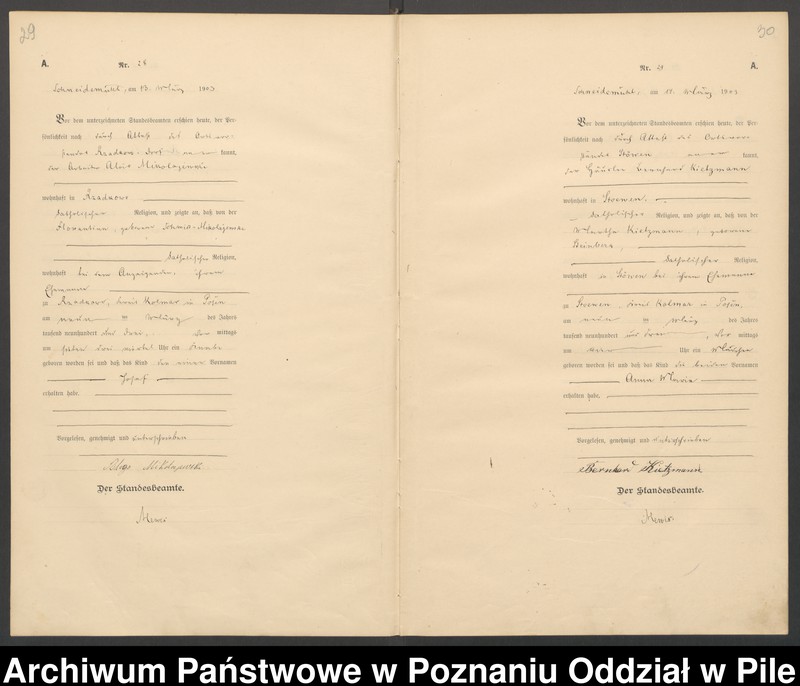 29
A.
Nr. 28
Schneidemühl, am 13. März 1903
Vor dem unterzeichneten Standesbeamten erschien heute, der Per-
sönlichkeit nach durch Attest des
kannt,
der Alois Mikolajewski
wohnhaft in Rzadkowo
katholischer Religion, und zeigte an, daß von der
Florentina, geborene Schmidt-Mikolajewski
katholischer Religion,
wohnhaft bei dem Anzeigenden, ihrem
Ehemanne
zu Rzadkowo, Kreis Kolmar in Posen
am im März des Jahres
tausend neunhundert und drei, mittags
um Uhr ein Knabe
geboren worden sei und daß das Kind den Vornamen
Josef
erhalten habe.
Vorgelesen, genehmigt und unterschrieben
Mikolajewski
Der Standesbeamte.
30
Nr. 29
A.
Schneidemühl, am März 1903
Vor dem unterzeichneten Standesbeamten erschien heute, der Per-
sönlichkeit nach durch Attest des
Stöwen kannt,
der Häusler Bernhard Kietzmann
wohnhaft in Stoewen
katholischer Religion, und zeigte an, daß von der
Martha Kietzmann, geborenen
Steinborn,
katholischer Religion,
wohnhaft in Stöwen bei ihrem Ehemanne
zu Stoewen, Kreis Kolmar in Posen,
am im März des Jahres
tausend neunhundert und drei, mittags
um Uhr ein Mädchen
geboren worden sei und daß das Kind die beiden Vornamen
Anna Maria
erhalten habe.
Vorgelesen, genehmigt und unterschrieben
Bernhard Kietzmann
Der Standesbeamte.
Archiwum Państwowe w Poznaniu Oddział w Pile